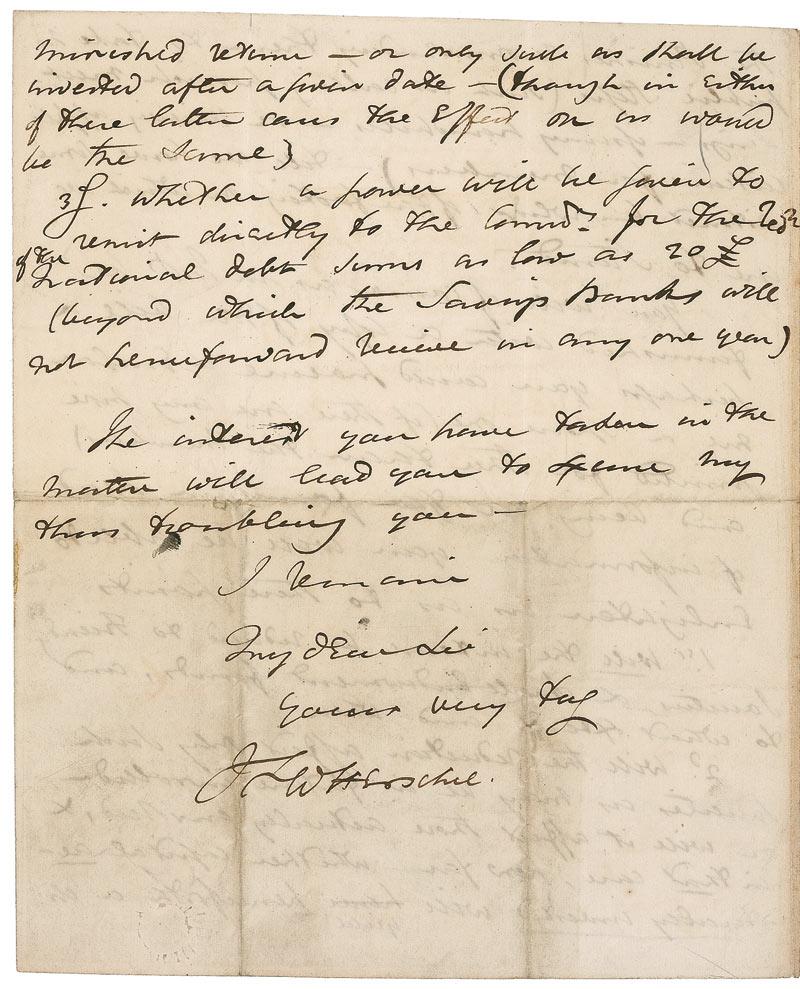 minished return — or only such as shall be
invested after a given date — (though in either
of these latter cases the Effect on us would
be the same)
3d. whether a power will be given to
remit directly to the Commrs. for the
of the
National debt sums as low as 20 £
(beyond which the Savings Banks will
not henceforward receive in any one year)
The interest you have taken in the
matter will lead you to excuse my
thus troubling you —
I remain
My dear Sir
yours very truly
JFW Herschel.